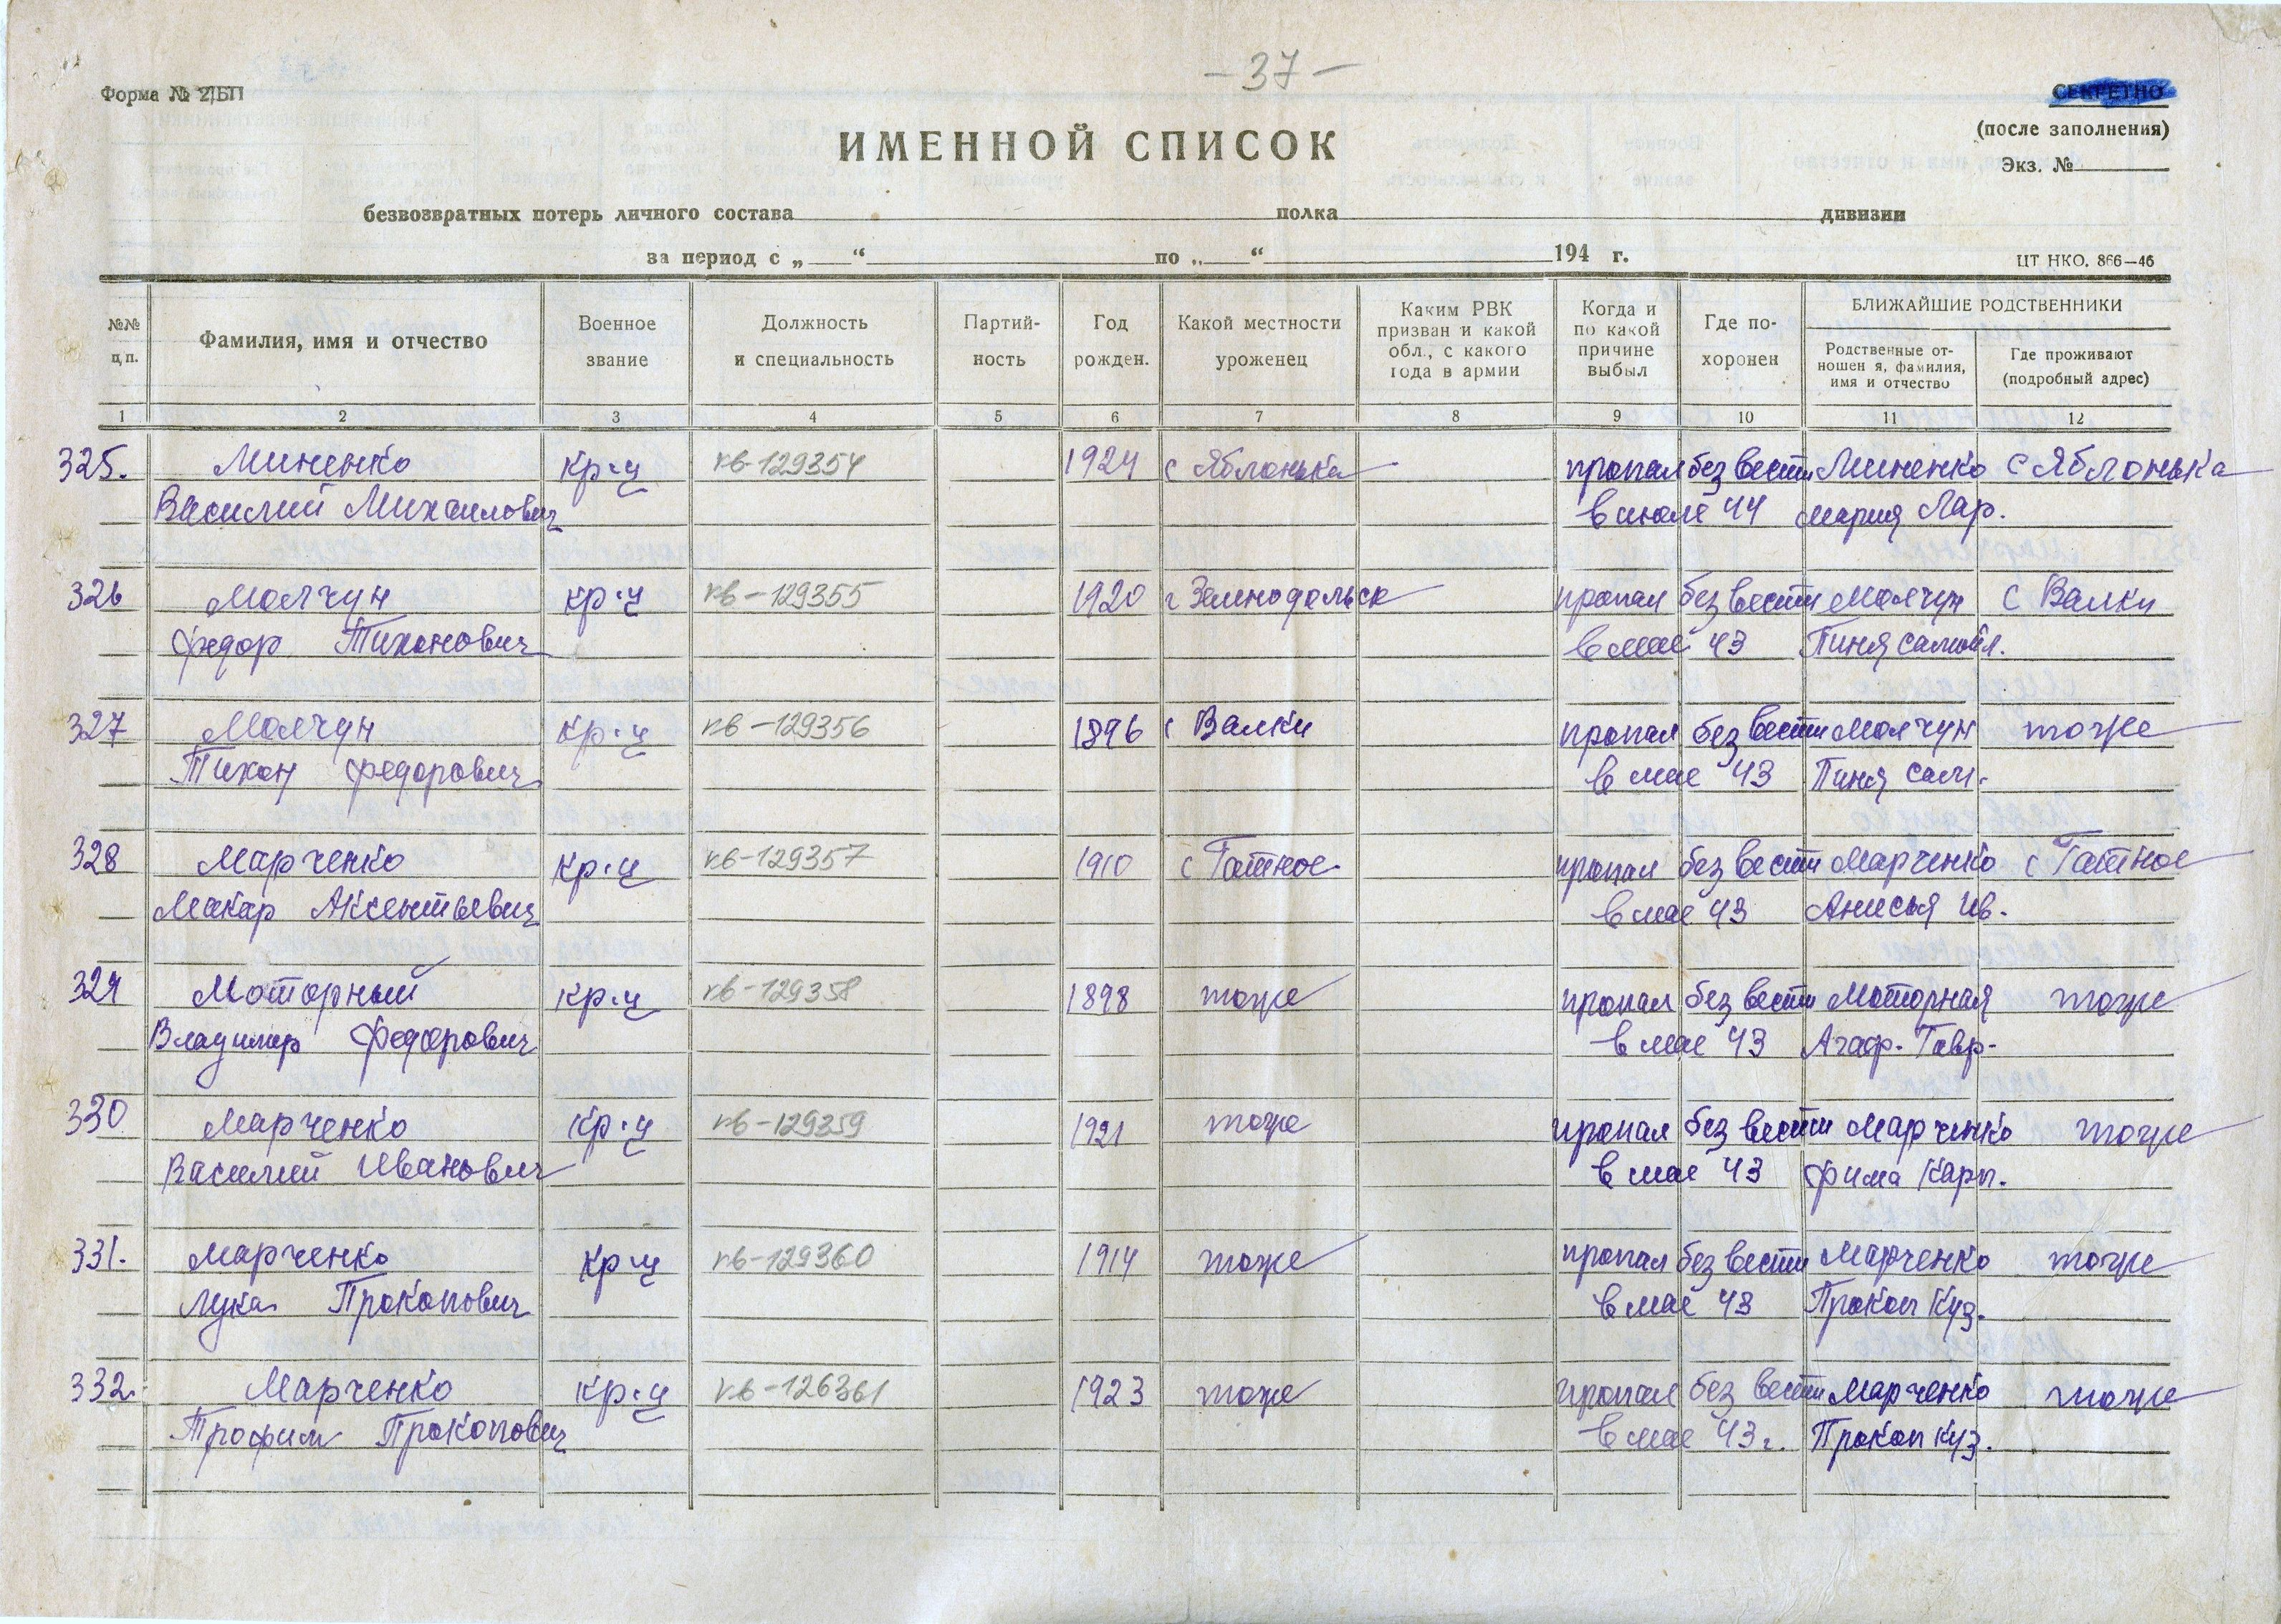 – 37 –
Форма № 2/БП
СЕКРЕТНО
(после заполнения)
Экз. №
ИМЕННОЙ СПИСОК
безвозвратных потерь личного состава полка дивизии
за период с „ “ по „ “ 194 г.
ЦТ НКО. 866—46
№№ п.п.
Фамилия, имя и отчество
Военное звание
Должность и специальность
Партий-ность
Год рожден.
Какой местности уроженец
Каким РВК призван и какой обл., с какого года в армии
Когда и по какой причине выбыл
Где по-хоронен
БЛИЖАЙШИЕ РОДСТВЕННИКИ
Родственные от-ношен я, фамилия, имя и отчество
Где проживают (подробный адрес)
1 2 3 4 5 6 7 8 9 10 11 12
325. Миненко кр-ц кв-129354 1924 с Яблонька пропал без вести Миненко с Яблонька
Василий Михаилович в июле 44 Мария Лар.
326 Молчун кр-ц кв-129355 1920 г Зеленодольск пропал без вести Молчун с Валки
Федор Тихонович в мае 43 Пиня Самойл.
327 Молчун кр-ц кв-129356 1896 с Валки пропал без вести Молчун тоже
Тихон Федорович в мае 43 Пиня Сам.
328 Марченко кр-ц кв-129357 1910 с Гатное пропал без вести Марченко с Гатное
Макар Аксентьевич в мае 43 Анисья Ив.
329 Моторный кр-ц кв-129358 1898 тоже пропал без вести Моторная тоже
Владимир Федорович в мае 43 Агаф. Гавр.
330 Марченко кр-ц кв-129359 1921 тоже пропал без вести Марченко тоже
Василий Иванович в мае 43 Фима Карп.
331. Марченко кр-ц кв-129360 1914 тоже пропал без вести Марченко тоже
Лука Прокопович в мае 43 Прокоп Куз.
332. Марченко кр-ц кв-126361 1923 тоже пропал без вести Марченко тоже
Трофим Прокопович в мае 43 г. Прокоп Куз.